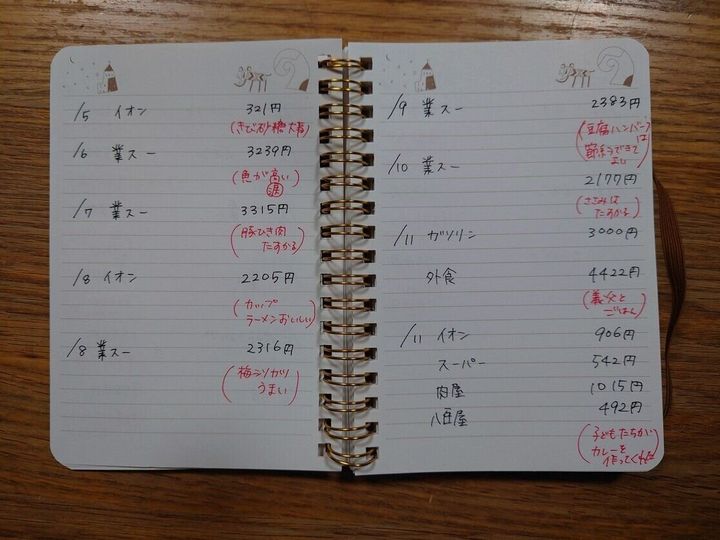 /5 イオン 321円
(きび砂糖大事)
/6 業スー 3239円
(魚が高い
涙)
/7 業スー 3315円
(豚ひき肉
たすかる)
/8 イオン 2205円
(カップ
ラーメンおいしい)
/8 業スー 2316円
(梅シソカツ
うまい)
/9 業スー 2383円
(豆腐ハンバーグは
節約できて
うまい)
/10 業スー
2177円
(ささみは
たすかる)
/11 ガソリン 3000円
外食 4422円
(義父と
ごはん)
/11 イオン 906円
スーパー 542円
肉屋 1015円
八百屋 492円
(子どもたちが
カレーを
作ってくれた)